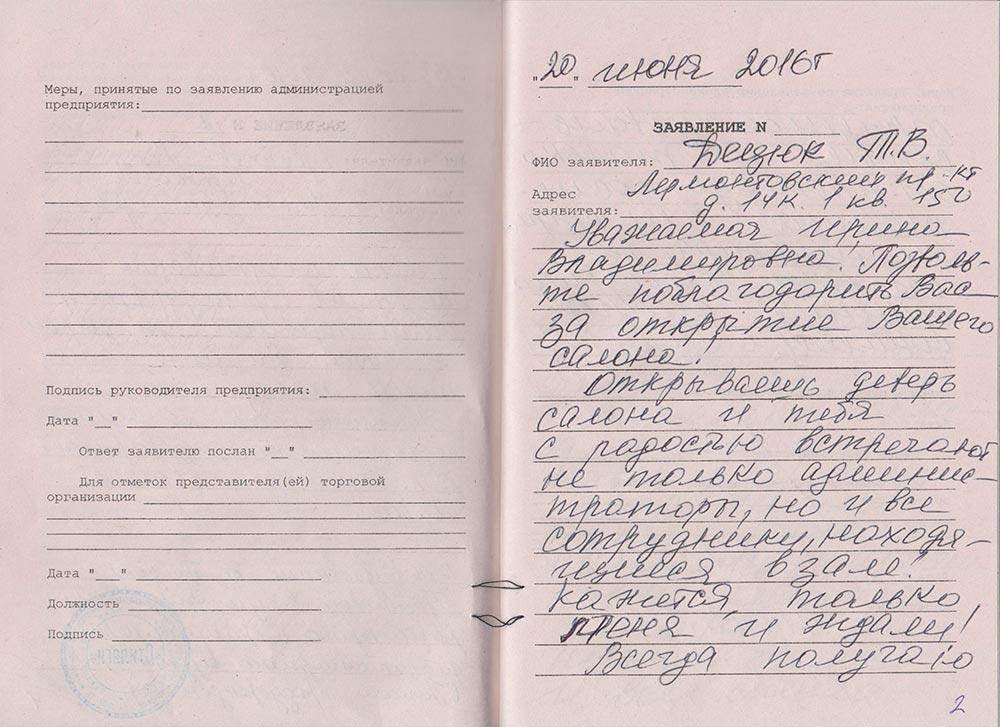 Меры, принятые по заявлению администрацией
предприятия:
Подпись руководителя предприятия:
Дата "__"
Ответ заявителю послан "__"
Для отметок представителя(ей) торговой
организации
Дата "__"
Должность
Подпись
Стиляги
"20" июня 2016г
ЗАЯВЛЕНИЕ N
ФИО заявителя: Децюк Т.В.
Адрес Лермонтовский пр-кт
заявителя: д. 14 к. 1 кв. 150
Уважаемая Ирина
Владимировна! Позволь-
те поблагодарить Вас
за открытие Вашего
салона!
Открываешь дверь
салона и тебя
с радостью встречают
не только админис-
траторы, но и все
сотрудники, находя-
щиеся в зале!
Кажется, только
меня и ждали!
Всегда получаю
2